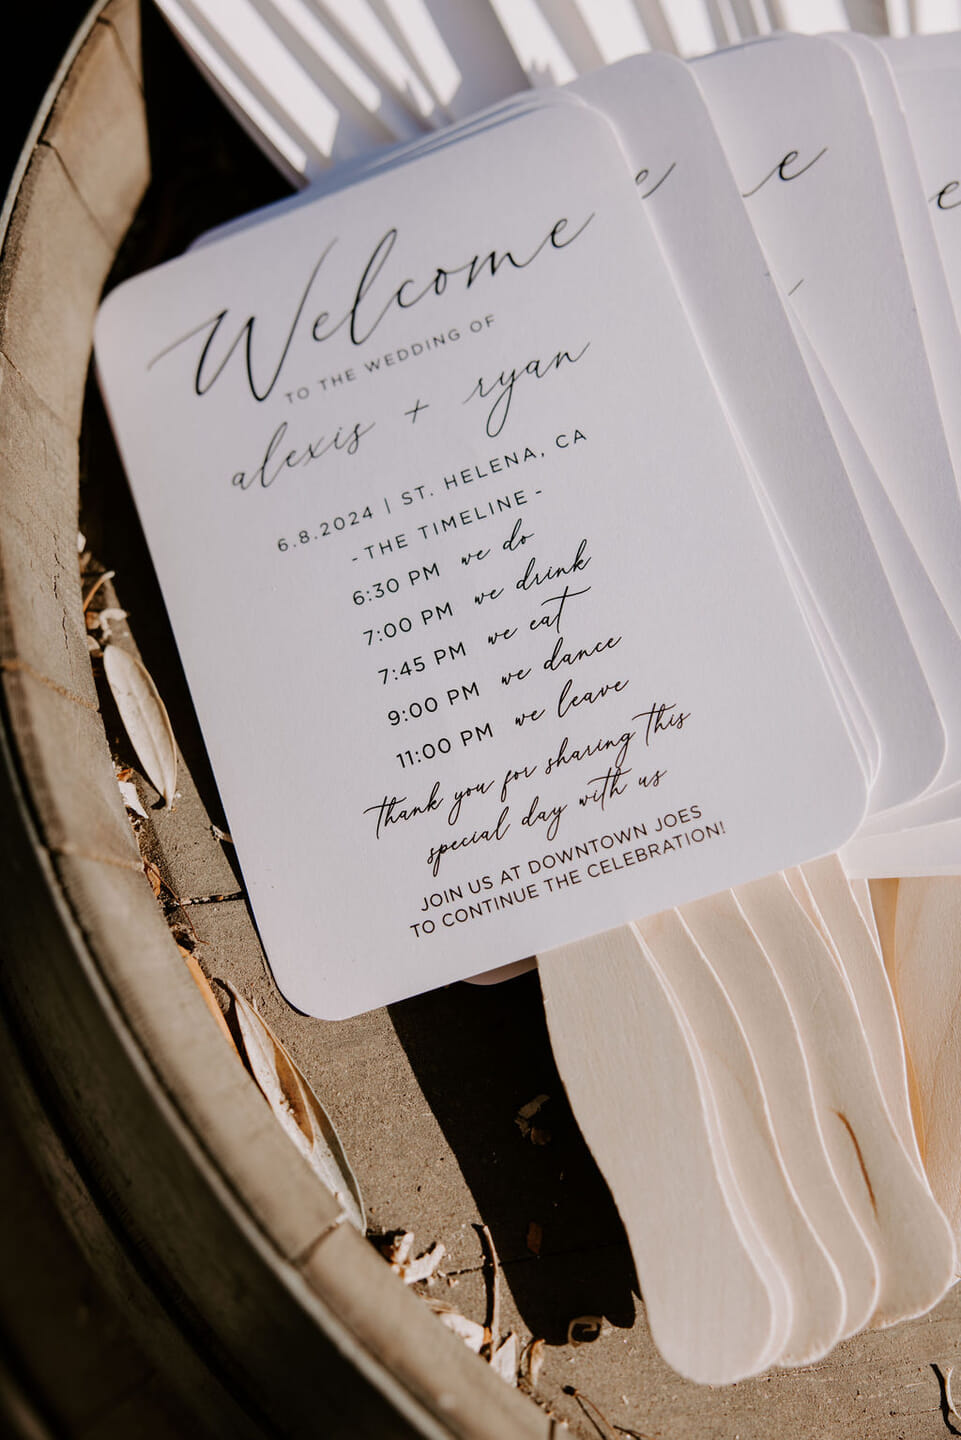 Welcome
TO THE WEDDING OF
alexis + ryan
6.8.2024 | ST. HELENA, CA
- THE TIMELINE -
6:30 PM we do
7:00 PM we drink
7:45 PM we eat
9:00 PM we dance
11:00 PM we leave
thank you for sharing this
special day with us
JOIN US AT DOWNTOWN JOES
TO CONTINUE THE CELEBRATION!
e
e
e